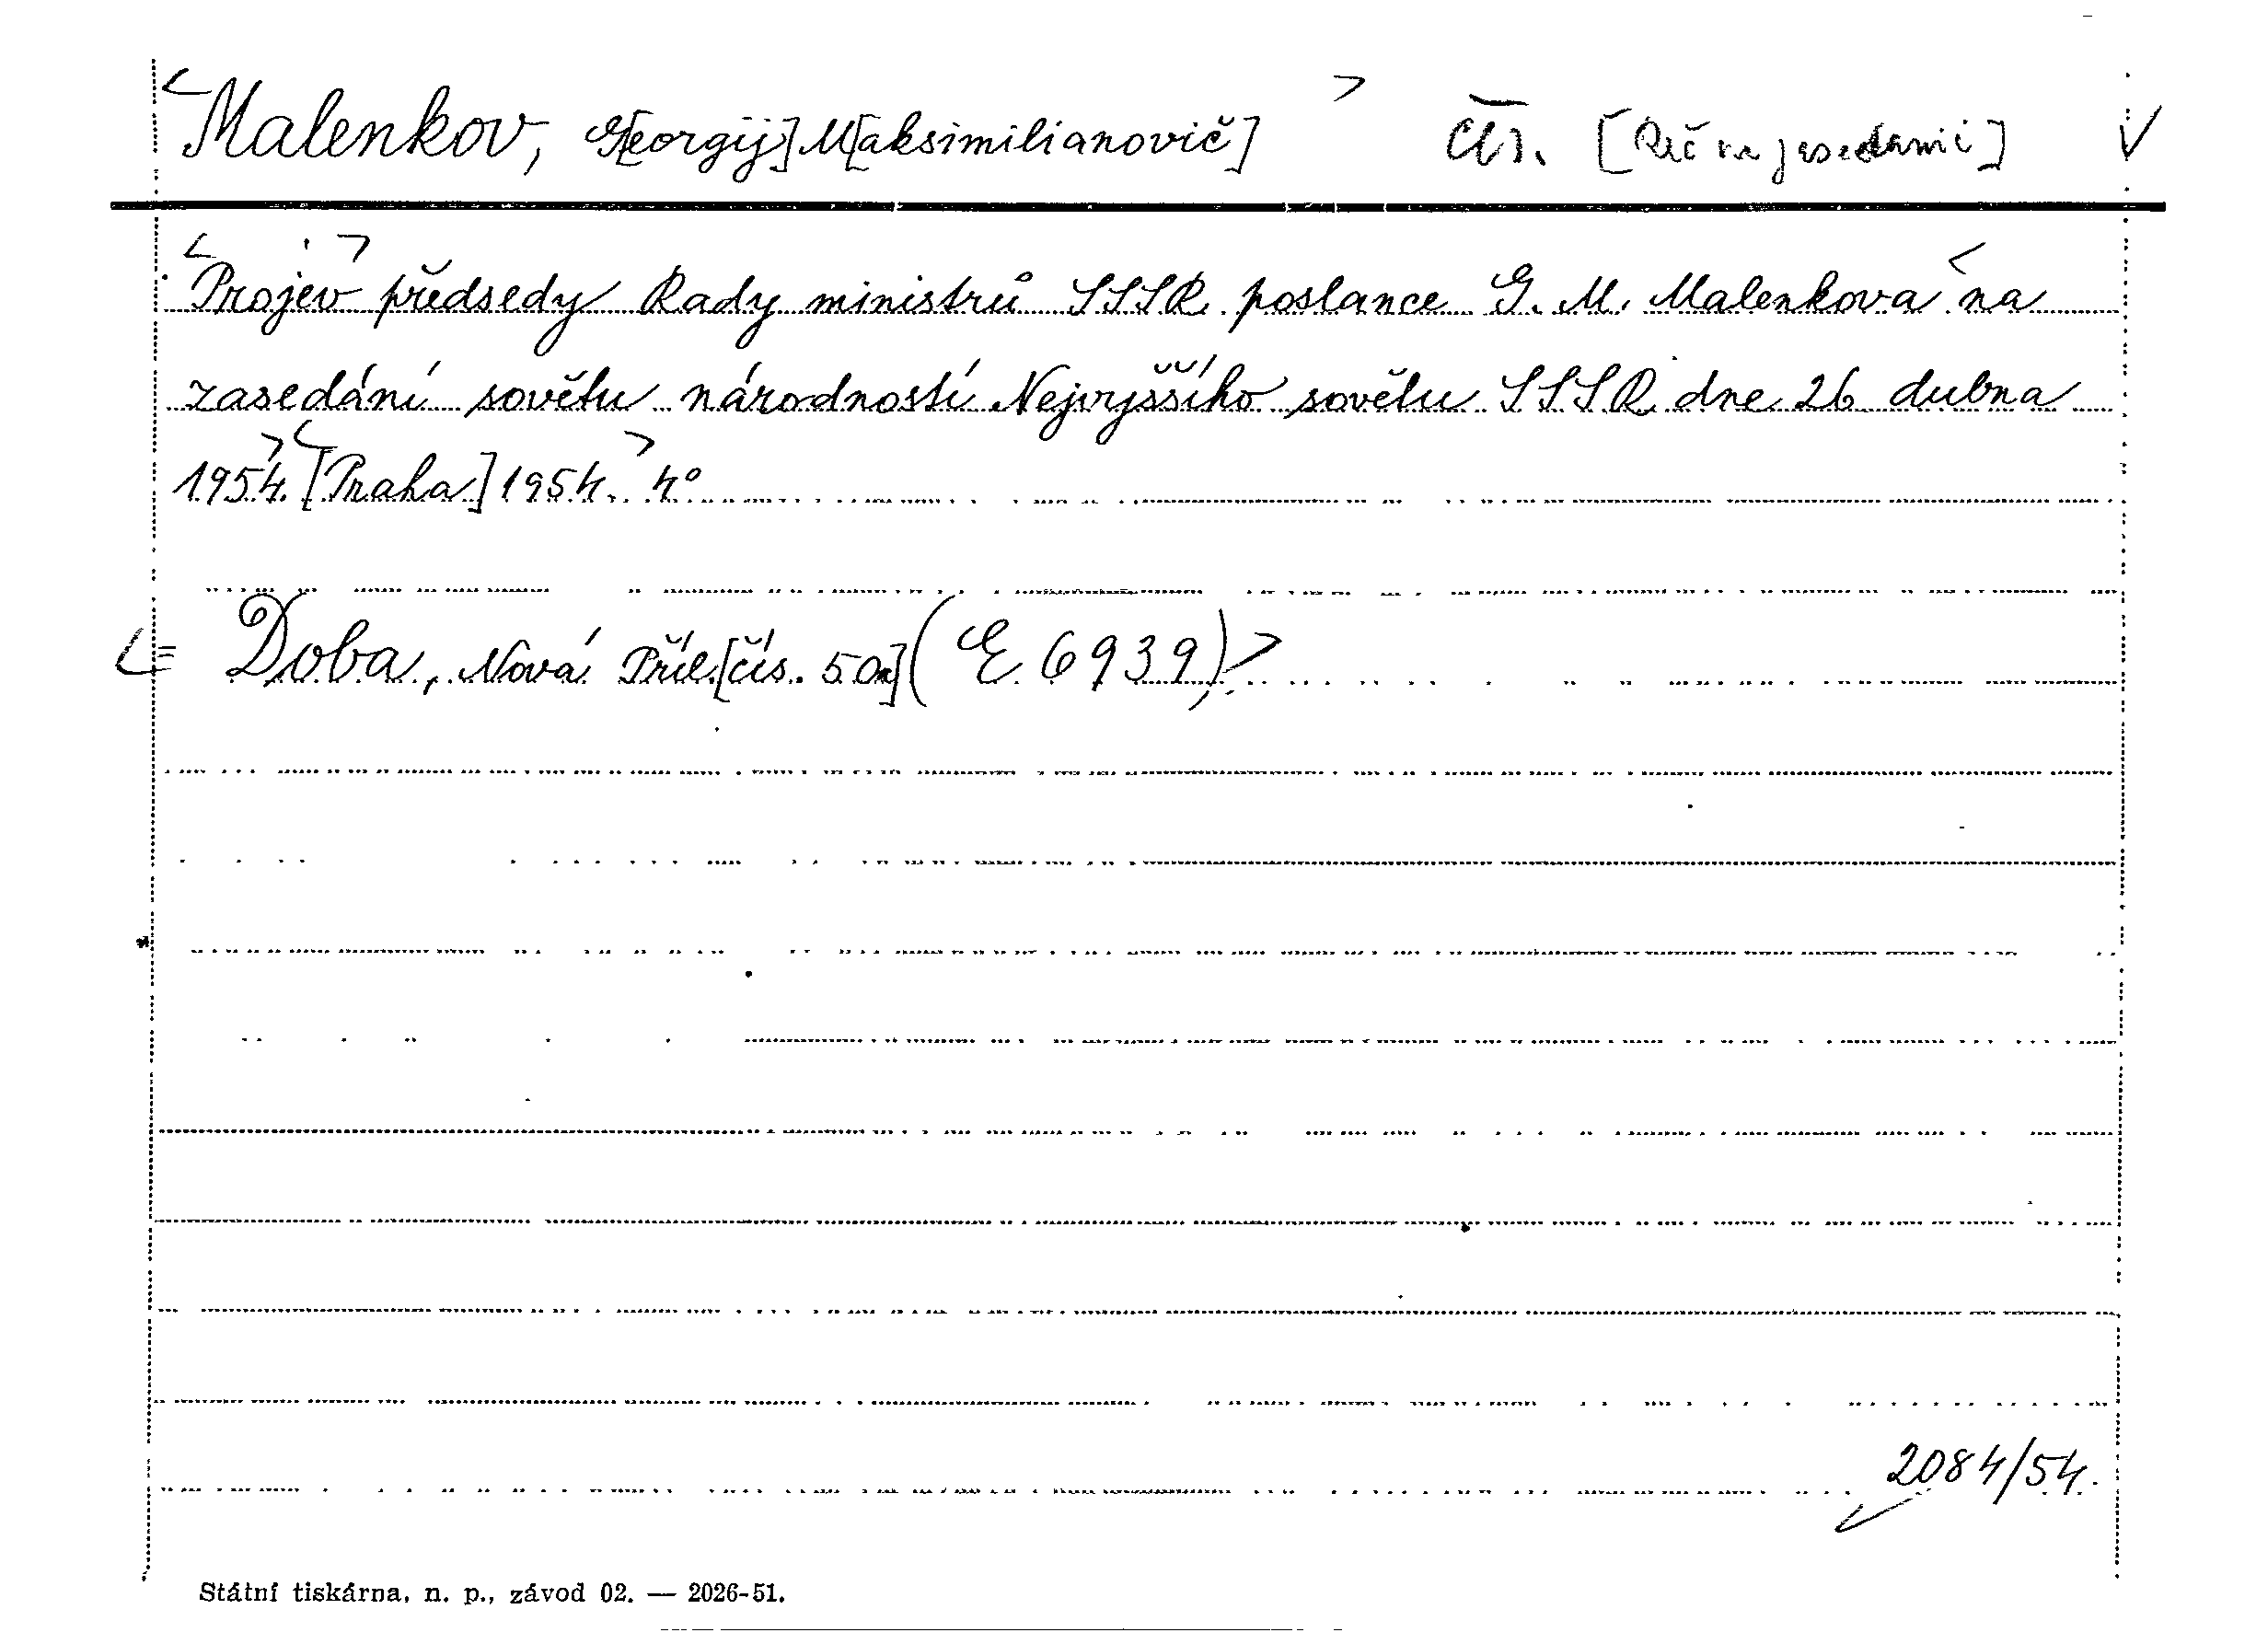 Malenkov, G[eorgij] M[aksimilianovič] čes. [Řeč na zasedání]
Projev předsedy Rady ministrů SSSR poslance G. M. Malenkova na
zasedání sovětu národností Nejvyššího sovětu SSSR dne 26 dubna
1954. [Praha] 1954. 4°
= Doba, Nová Příl. [čís. 50a] (E 6939)
2084/54.
Státní tiskárna, n. p., závod 02. — 2026-51.